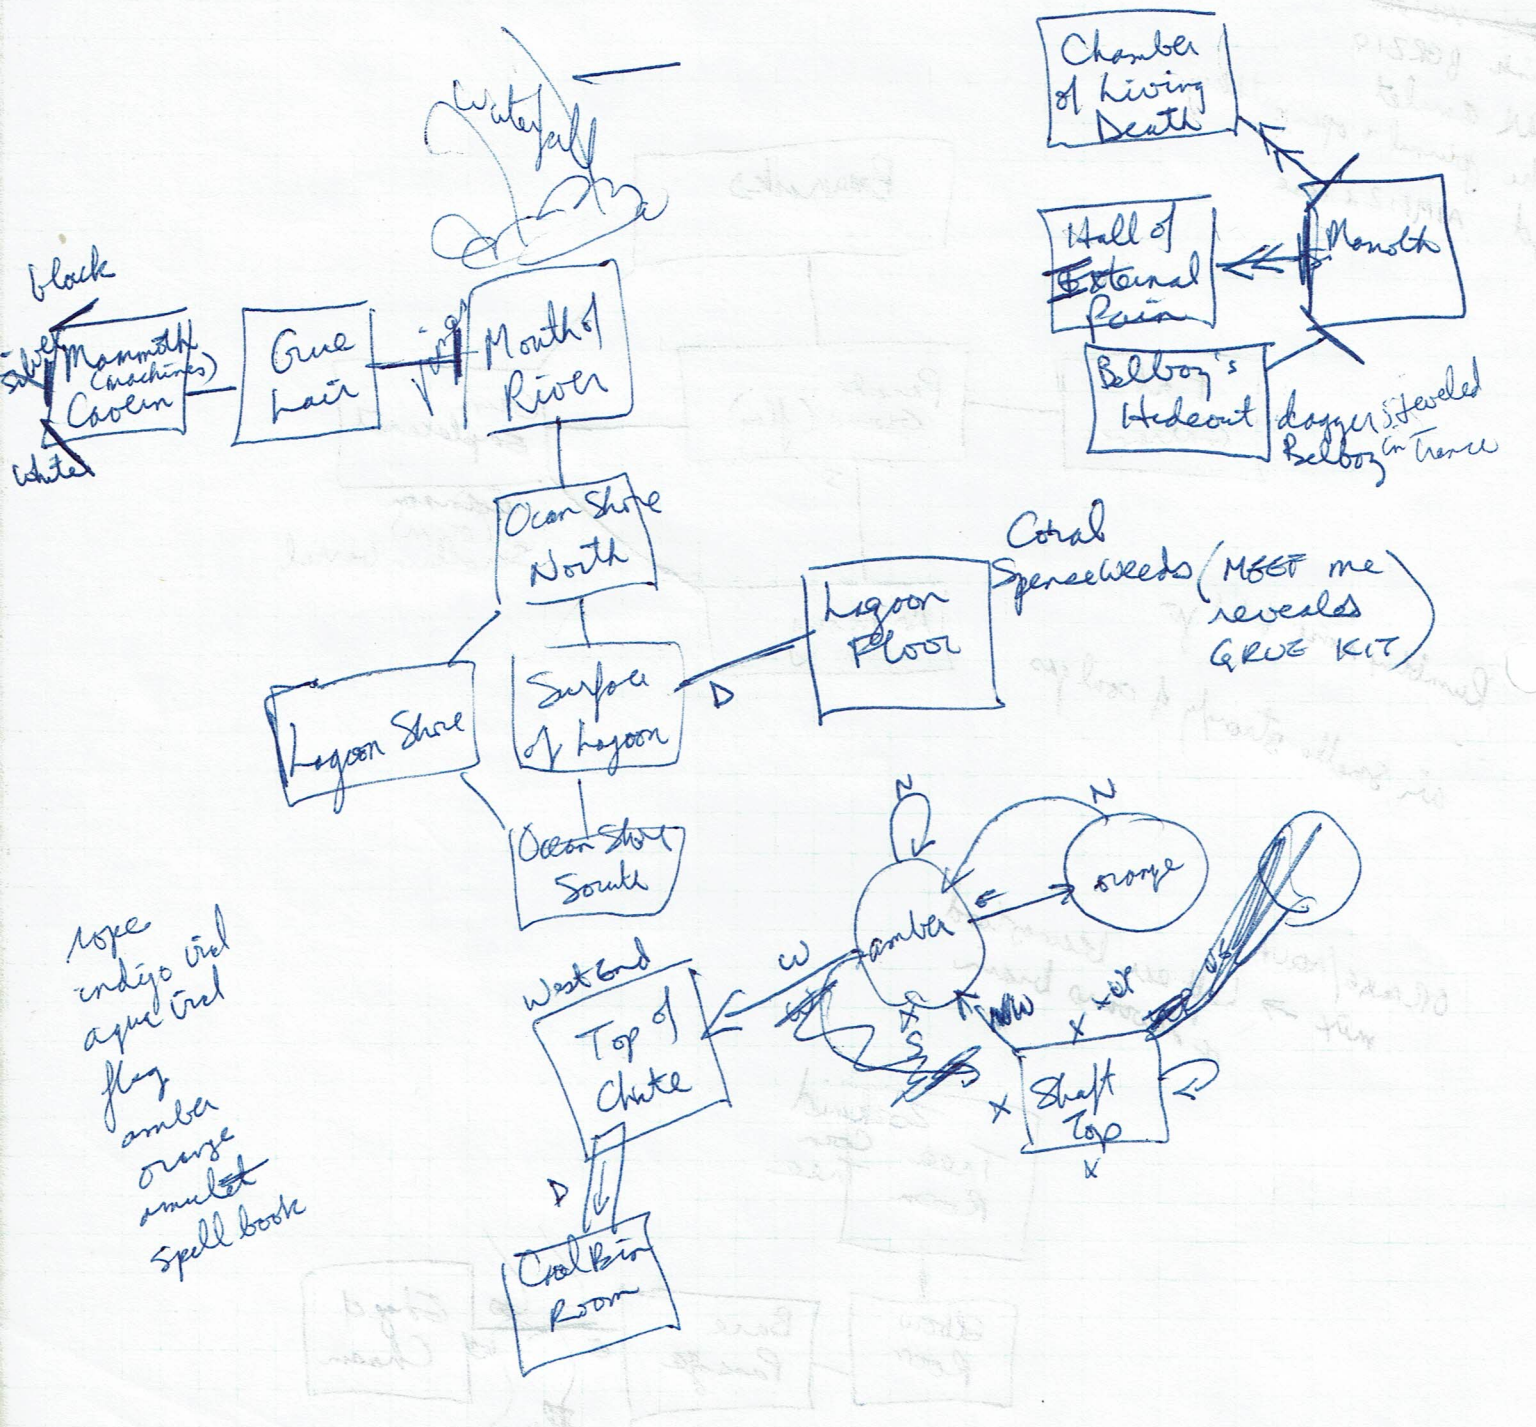 waterfall
Chamber
of Living
Death
Hall of
External
Pain
Mamoth
Belboz's
Hideout
dagger is Jeweled
Belboz in Trance
black
silver
white
Mammoth
(machines)
Cavern
Grue
Lair
Mouth of
River
Ocean Shore
North
Coral
Spenseweeds (MEET me
reveales
GRUE KIT)
Lagoon
Floor
D
Surface
of Lagoon
Lagoon Shore
Ocean Shore
South
N
N
amber
E
orange
W
S
NW
X
X
X
X
Shaft
Top
West End
Top of
Chute
D
Coal Bin
Room
rope
indigo vial
aqua vial
flag
amber
orange
amulet
spell book